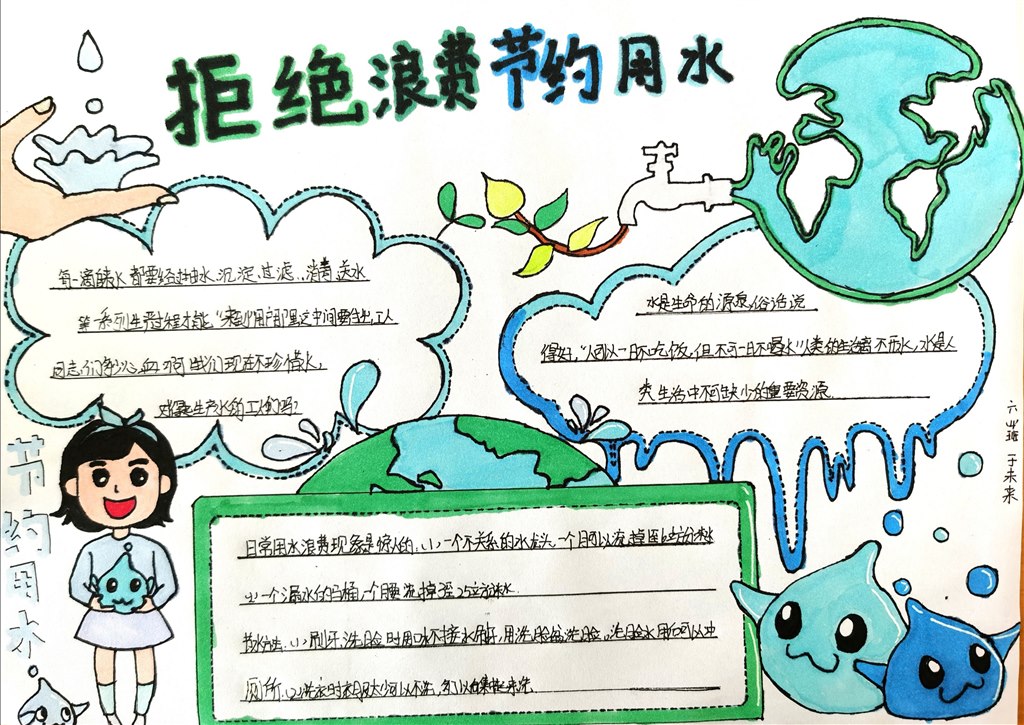 拒绝浪费节约用水
每一滴睛水都要经过抽水、沉淀、过滤、消毒、送水
等一系列生产过程才能"来到"用户那里这中间要付出工人
同志们多少心血啊 我们现在不珍惜水,
对得起生产水的工人们吗?
水是生命的源泉,俗话说
得好,"人可以一日不吃饭,但不可一日不喝水"人类的生活离不开水,水是人
类生活中不可缺少的重要资源
六 班 于未来
节约用水
日常用水浪费现象是惊人的:(1)一个不关紧的水龙头,一个月可以流掉 立方米水
(2)一个漏水的马桶,一个月要流掉3至25立方米水
节水方法:(1)刷牙、洗脸时用口杯接水刷牙,用洗脸盆洗脸,洗脸水用后可以冲
厕所。(2)洗衣时 可以不洗,